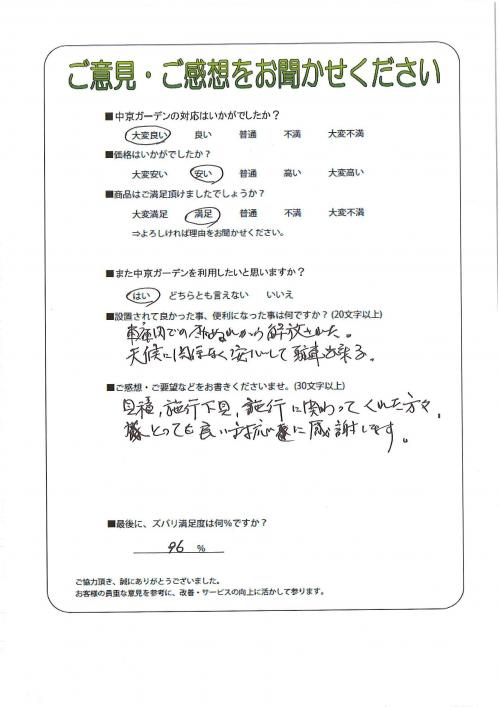 ご意見・ご感想をお聞かせください
■中京ガーデンの対応はいかがでしたか？
大変良い 良い 普通 不満 大変不満
■価格はいかがでしたか？
大変安い 安い 普通 高い 大変高い
■商品はご満足頂けましたでしょうか？
大変満足 満足 普通 不満 大変不満
⇒よろしければ理由をお聞かせください。
■また中京ガーデンを利用したいと思いますか？
はい どちらとも言えない いいえ
■設置されて良かった事、便利になった事は何ですか？(20文字以上)
車庫内での雨ぬれから解放された。
天候に関係なく安心して駐車出来る。
■ご感想・ご要望などをお書きくださいませ。(30文字以上)
見積,施行下見,施行に関わってくれた方々,
とっても良い対応に感謝します。
■最後に、ズバリ満足度は何％ですか？
96 %
ご協力頂き、誠にありがとうございました。
お客様の貴重な意見を参考に、改善・サービスの向上に活かして参ります。